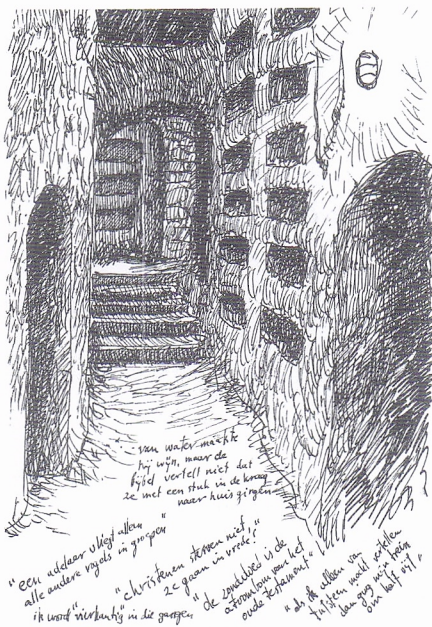 van water maakte
hij wijn, maar de
bijbel vertelt niet dat
ze met een stuk in de kraag
naar huis gingen
"een adelaar vliegt alleen
alle andere vogels in groepen"
ik word "vierkantig" in die gangen
"christenen sterven niet,
ze gaan in vrede!"
"de zondvloed is de
atoombom van het
oude testament!"
"als ik alleen van
fulsten mocht vertellen
dan ging mijn trein
om half vijf"